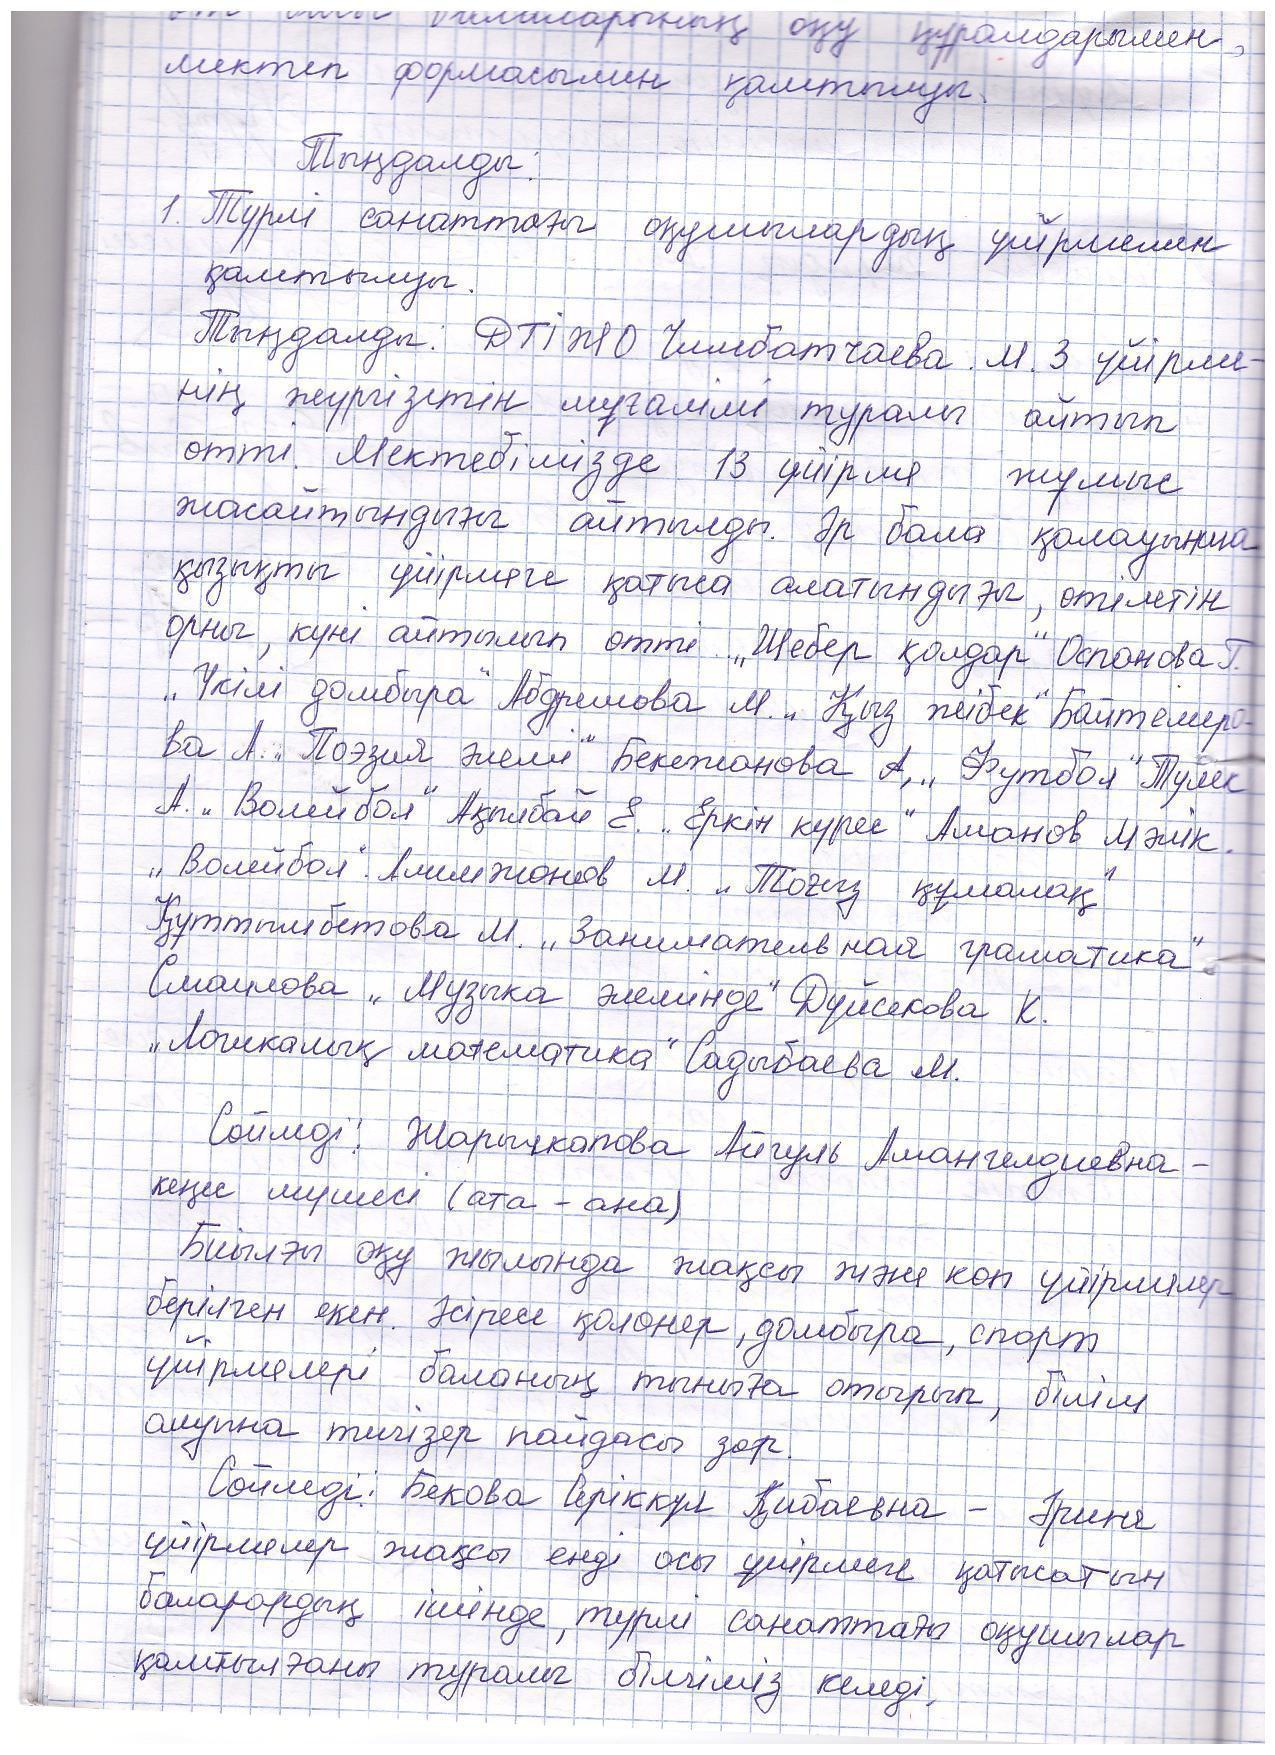 балаларының оқу құралдарымен,
мектеп формасымен қамтылуы.
Тыңдалды:
1. Түрлі санаттағы оқушылардың үйірмемен
қамтылуы.
Тыңдалды: ДТІЖО Чимбатчаева. М. З үйірме-
нің жүргізетін мұғалімі туралы айтып
өтті. Мектебімізде 13 үйірме жұмыс
жасайтындығы айтылды. Әр бала қалауынша
қызықты үйірмеге қатыса алатындығы, өтілетін
орны, күні айтылып өтті. „Шебер қолдар" Оспанова Г.
„Үкілі домбыра" Абдримова М. „Қыз Жібек" Байтемиро-
ва А. „Поэзия әлемі" Бекежанова А, „Футбол" Тулек
А. „Волейбол" Ақылбай Е. „Еркін күрес" Аманов Мәлік.
„Волейбол". Алимжанов М. „Тоғыз құмалақ"
Құттымбетова М. „Занимательная граматика"
Смаилова „Музыка әлемінде" Дүйсекова К.
„Логикалық математика" Садыбаева М.
Сөйледі: Жарылкапова Айгуль Амангелдиевна –
кеңес мүшесі (ата - ана)
Биылғы оқу жылында жақсы және көп үйірмелер
берілген екен. Әсіресе қолөнер, домбыра, спорт
үйірмелері баланың тыныға отырып, білім
алуына тигізер пайдасы зор.
Сөйледі: Бекова Серіккул Қибаевна – Әрине
үйірмелер жақсы енді осы үйірмеге қатысатын
балалардың ішінде, түрлі санаттағы оқушылар
қамтылғаны туралы білгіміз келеді,